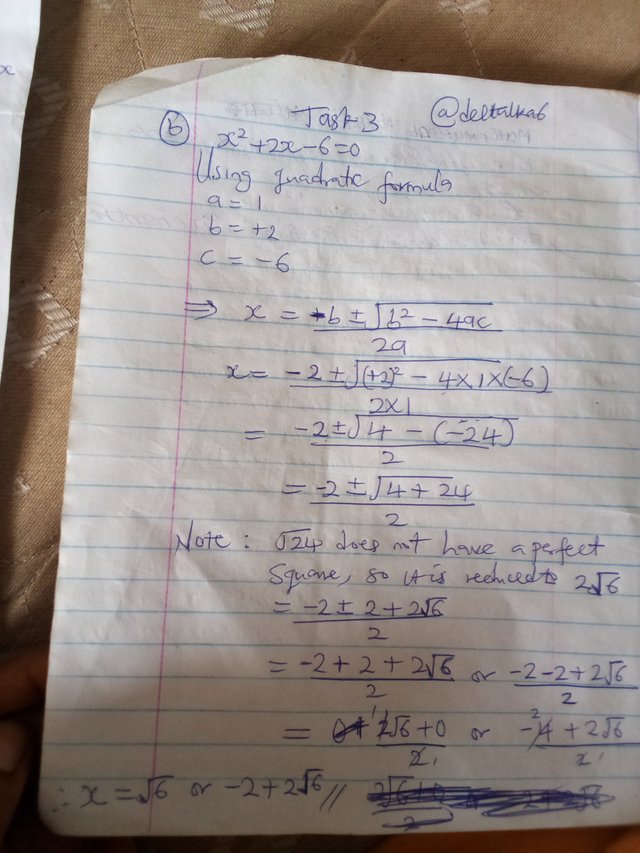 Task 3 @deltalka6
(b) x² + 2x - 6 = 0
Using quadratic formula
a = 1
b = +2
c = -6
⇒ x = -b ± √b² - 4ac / 2a
x = -2 ± √(+2)² - 4×1×(-6) / 2×1
= -2 ± √4 - (-24) / 2
= -2 ± √4 + 24 / 2
Note : √24 does not have a perfect
Square, so it is reduced to 2√6
= -2 ± 2 + 2√6 / 2
= -2 + 2 + 2√6 / 2 or -2 - 2 + 2√6 / 2
= 2√6 + 0 / 2 or -4 + 2√6 / 2
∴ x = √6 or -2 + 2√6 //